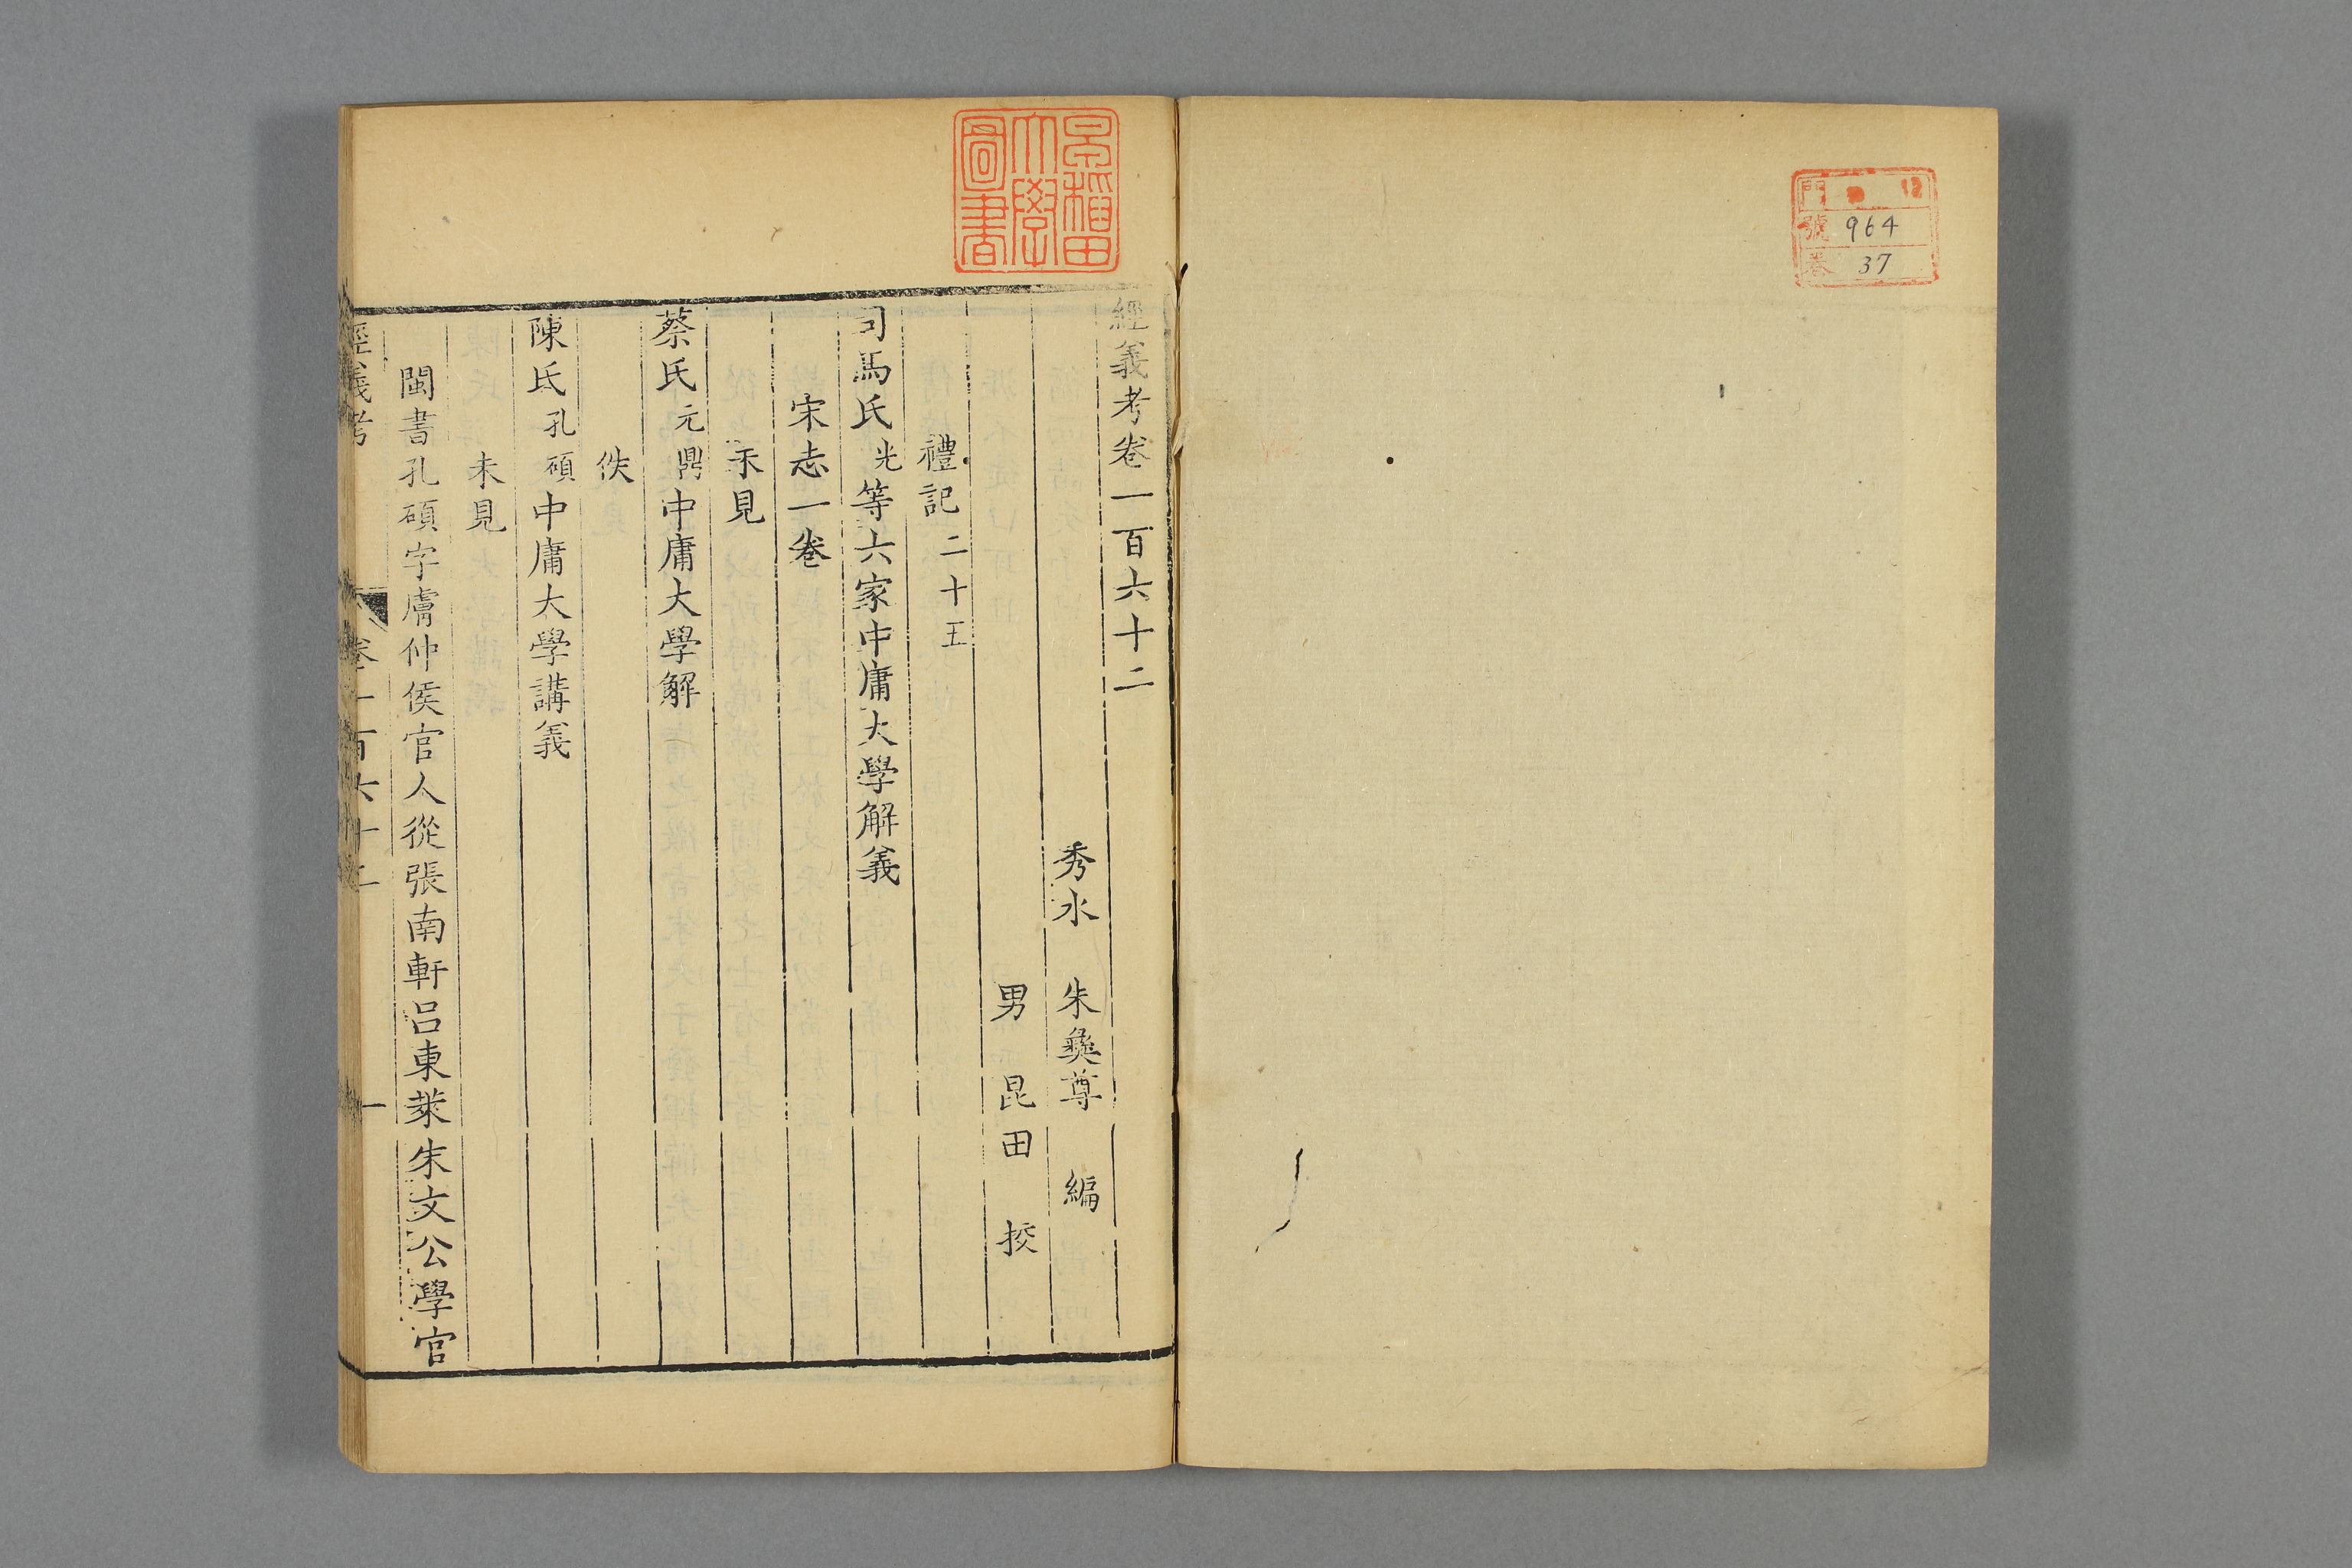 門
號 964
卷 37
早稲田大學圖書
經義考卷一百六十二
秀水 朱彝尊 編
男 昆田 挍
禮記二十五
司馬氏光等六家中庸大學解義
宋志一卷
未見
蔡氏元鼎中庸大學解
佚
陳氏孔碩中庸大學講義
未見
閩書孔碩字膚仲侯官人從張南軒呂東萊朱文公學官
經義考 卷一百六十二 一